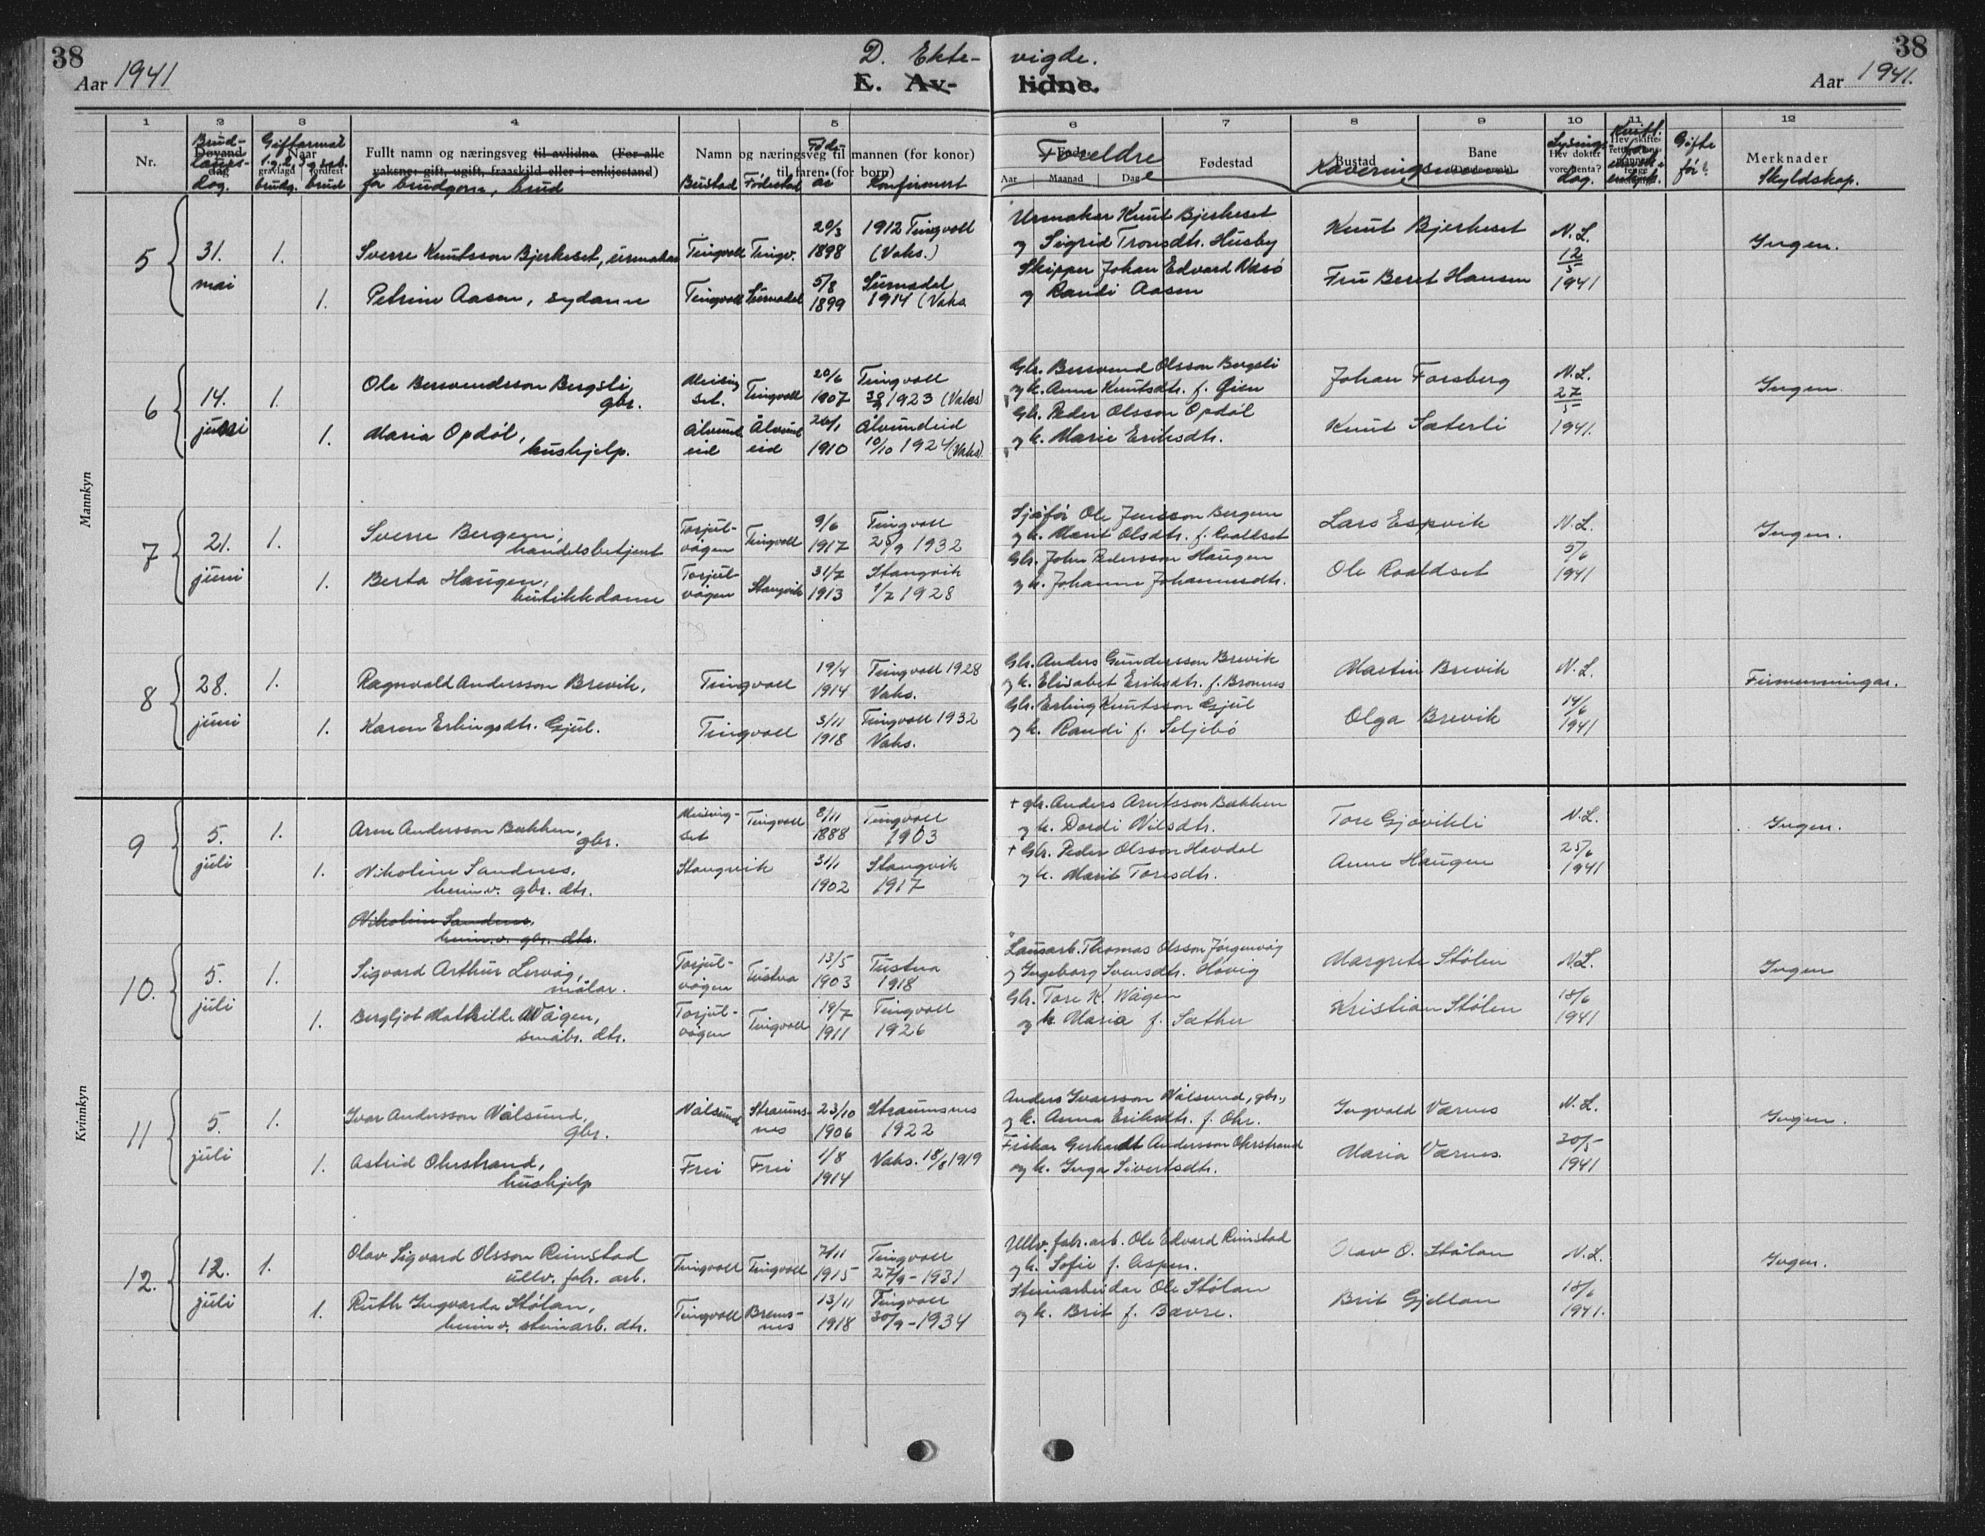 38
Aar 1941
D. Ekte- vigde.
E. Av- lidne.
38
Aar 1941.
1 2 3 4 5 6 7 8 9 10 11 12
Nr.
Brud-
laups-
dag.
Giftarmål
1. g., 2., 3 g. osb.
brudg. brud
Naar
gravlagd jordfest
Fullt namn og næringsveg til avlidne. (For alle
vaksne: gift, ugift, fraaskild eller i enkjestand)
for brudgom, brud
Namn og næringsveg til mannen (for konor)
til faren (for born)
Bustad Fødestad
Føde-
år
Konfirmert
Foreldre
Aar Maanad Dag
Fødestad
Bustad
Bane
Kaveringsmenn
Lysings
dag.
Hev dokter
vore henta?
Gifte
før?
Merknader
Skyldskap.
Mannkyn
Kvinnkyn
5
31.
mai
1.
Sverre Knutsson Bjerkeset, urmakar
Tingvoll Tingv.
20/3
1898
1912 Tingvoll
(Vaks.)
Urmakar Knut Bjerkeset
og Sigrid Tronsdtr. Husby
Knut Bjerkeset
N.L.
12/5
1941
Ingen.
1.
Petrine Aasen, sydame
Tingvoll Surnadal
5/8
1899
Surnadal
1914 (Vaks
Skipper Johan Edvard Vasø
og Randi Aasen
Fru Beret Hansen
6
14.
juni
1.
Ole Bersvendsson Bergsli,
gbr.
Meising
set.
Tingvoll
20/6
1907
Tingvoll
1923 (Vaks)
Gbr. Bersvend Olsson Bergsli
og k. Anne Knutsdtr. f. Øien
Johan Forsberg
N.L.
27/5
1941.
Ingen.
1.
Maria Opdøl,
hushjelp.
Ålvund
eid
Ålvund
eid
26/1
1910
Ålvundeid
10/10 1924 (Vaks).
Gbr. Peder Olsson Opdøl
og k. Marie Eriksdtr.
Knut Sæterli
7
21.
juni
1.
Sverre Bergem,
handelsbetjent
Torjul-
vågen
Tingvoll
9/6
1917
Tingvoll
25/9 1932
Sjåfør Ole Jensson Bergem
og k. Marit Olsdtr. f. Roaldset
Lars Espvik
N.L.
5/6
1941
Ingen.
1.
Berta Haugen,
butikkdame
Torjul-
vågen
Stangvik
31/7
1913
Stangvik
1/7 1928
Gbr. John Pedersson Haugen
og k. Johanne Johannesdtr.
Ole Roaldset
8
28.
juni
1.
Ragnvald Andersson Brevik,
Tingvoll
19/4
1914
Tingvoll 1928
Vaks.
Gbr. Anders Gundersson Brevik
og k. Elisabet Eriksdtr. f. Bronnes
Martin Brevik
N.L.
14/6
1941
Firmenningar.
1.
Karen Erlingsdtr. Gjul.
Tingvoll
3/11
1918
Tingvoll 1932
Vaks.
Gbr. Erling Knutsson Gjul
og k. Randi f. Seljebø
Olga Brevik
9
5.
juli
1.
Arne Andersson Bakken,
gbr.
Meising-
set
Tingvoll
8/11
1888
Tingvoll
1903
+ gbr. Anders Arntsson Bakken
og k. Dordi Nilsdtr.
Tore Gjøvikli
N.L.
25/6
1941
Ingen.
1.
Nikoline Sandnes,
heimv. gbr. dtr.
Stangvik
31/1
1902
Stangvik
1917
+ Gbr. Peder Olsson Havdal
og k. Marit Toresdtr.
Anne Haugen
Nikoline Sandnes
heimv. gbr. dtr.
10.
5.
juli
1.
Sigvard Arthur Lervåg,
målar.
Torjul-
vågen
Tustna
13/5
1903
Tustna
1918
Lausarb. Thomas Olsson Jørgenvåg
og Ingeborg Svensdtr. Hovig
Margrete Stølen
N.L.
18/6
1941
Ingen
1.
Bergljot Mathilde Vågen,
småbr. dtr.
Torjul-
vågen
Tingvoll
19/7
1911
Tingvoll
1926
Gbr. Tore K. Vågen
og k Maria f. Sæther
Kristian Stølen
11
5.
juli
1.
Ivar Andersson Vålsund,
gbr.
Vålsund
Straums-
nes
23/10
1906
Straumsnes
1922
Anders Ivarsson Vålsund, gbr.,
og k. Anna Eriksdtr. f. Ohr.
Ingvald Værnes
N.L.
30/5-
1941
Ingen.
1.
Astrid Ohrstrand,
hushjelp
Frei
Frei
1/8
1914
Vaks. 18/8 1919
Fiskar Gerhardt Andersson Ohrstrand
og k. Inga Sivertsdtr.
Maria Værnes.
12.
12.
juli
1.
Olav Sigvard Olsson Rimstad
ullv. fabr. arb.
Tingvoll
Tingvoll
7/11
1915
Tingvoll
27/9-1931
Ullv. fabr. arb. Ole Edvard Rimstad
og k. Sofie f. Aspen.
Olav O. Stølan
N.L.
18/6
1941.
Ingen.
1.
Ruth Ingvarda Stølan,
heimv. steinarb. dtr.
Tingvoll
Brems-
nes
13/11
1918
Tingvoll
30/9-1934
Steinarbeidar Ole Stølan
og k. Brit f. Bævre.
Brit Gjellan